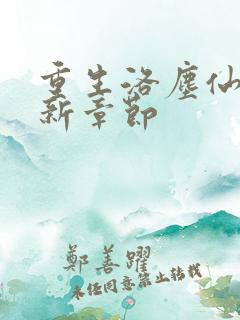 重生洛塵仙
新章節
鄭善躍
未經同意禁止轉載